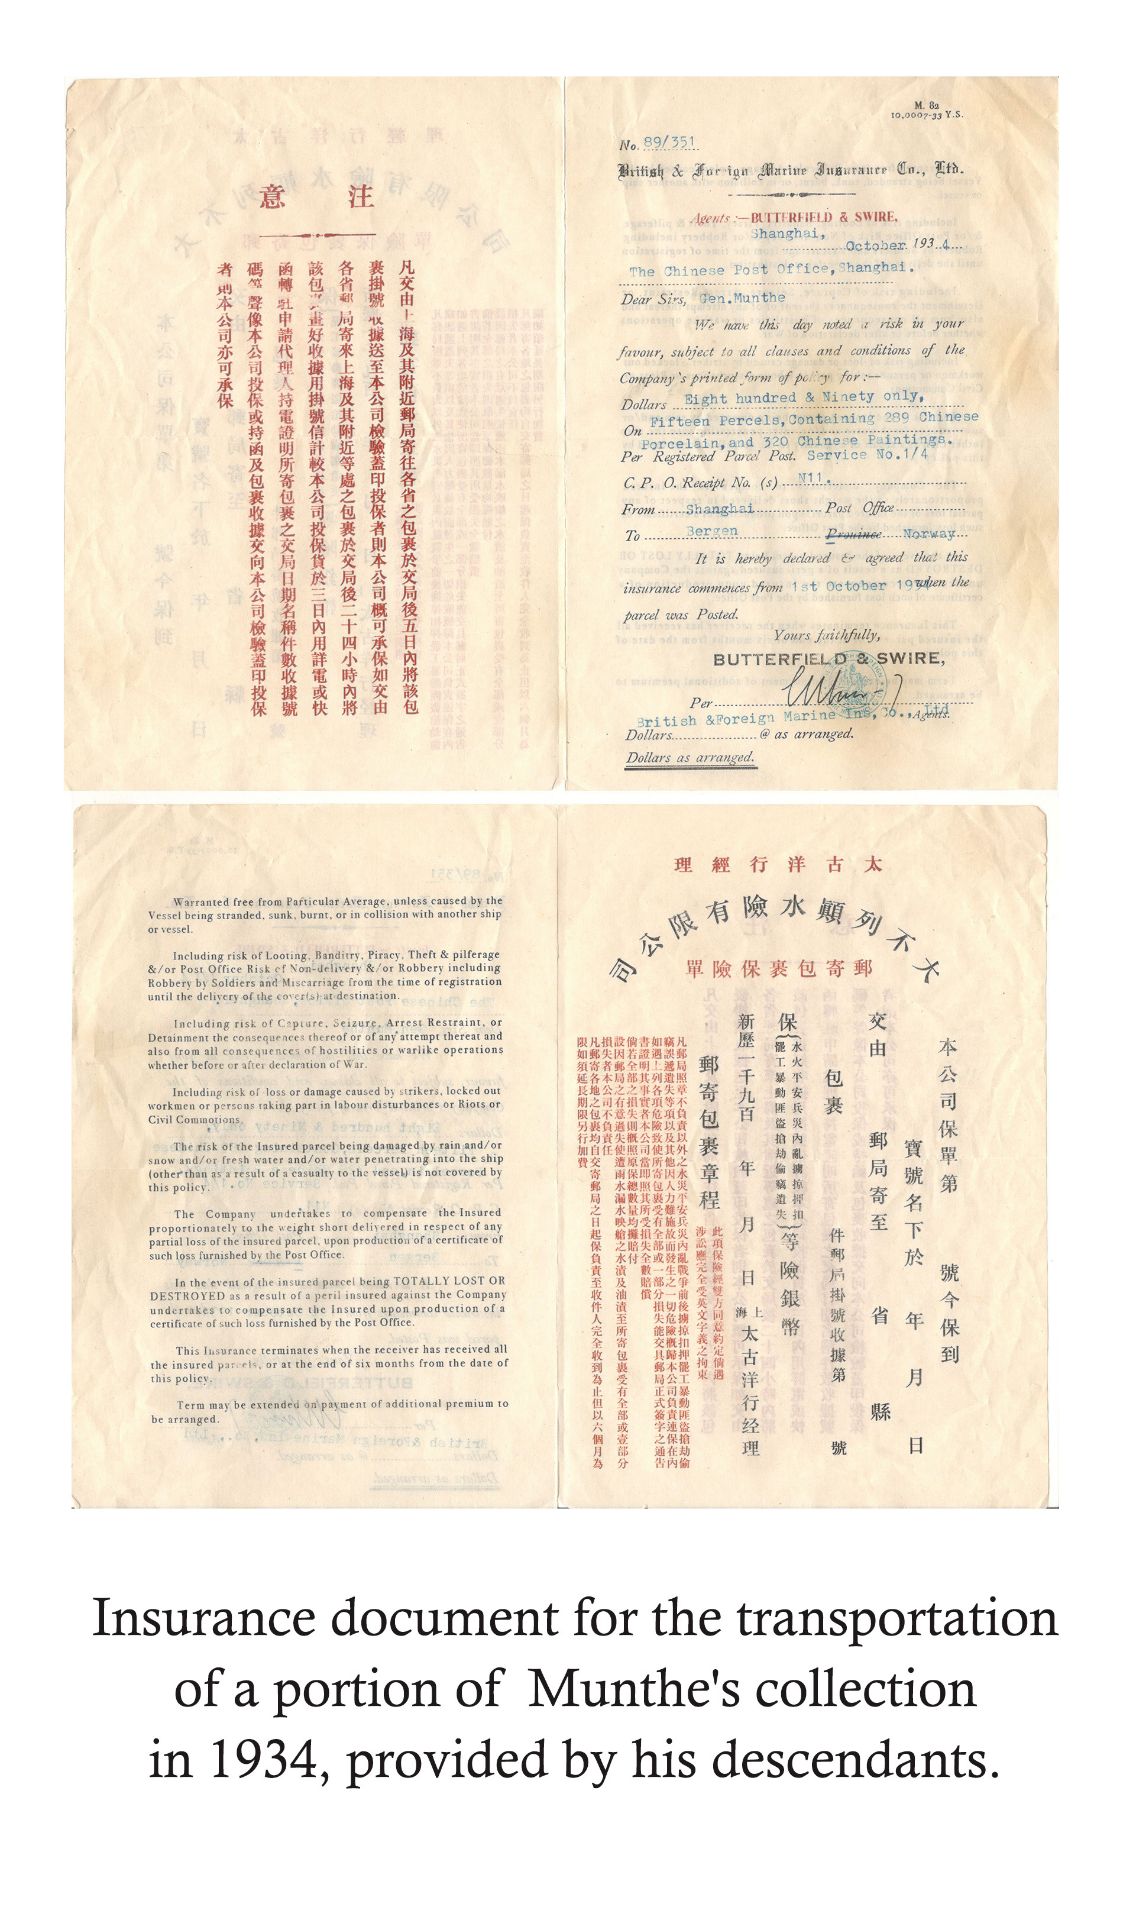 注意
凡交由上海及其附近郵局寄往各省之包裹於交局後五日內將該包
裹掛號收據送至本公司檢驗蓋印投保者則本公司概可承保如交由
各省郵局寄來上海及其附近等處之包裹於交局後二十四小時內將
該包裹畫好收據用掛號信計較本公司投保貨於三日內用詳電或快
函轉駐申請代理人持電證明所寄包裹之交局日期名稱件數收據號
碼等聲像本公司投保或持函及包裹收據交向本公司檢驗蓋印投保
者則本公司亦可承保
M. 82
10,0007-33 Y.S.
No. 89/351
British & Foreign Marine Insurance Co., Ltd.
Agents:—BUTTERFIELD & SWIRE,
Shanghai,
October 1934
The Chinese Post Office, Shanghai.
Dear Sirs, Gen.Munthe
We have this day noted a risk in your
favour, subject to all clauses and conditions of the
Company's printed form of policy for:—
Dollars Eight hundred & Ninety only,
On Fifteen Percels, Containing 289 Chinese
Porcelain, and 320 Chinese Paintings.
Per Registered Parcel Post. Service No.1/4
C. P. O. Receipt No. (s) N11.
From Shanghai Post Office
To Bergen Province Norway
It is hereby declared & agreed that this
insurance commences from 1st October 1934 when the
parcel was Posted.
Yours faithfully,
BUTTERFIELD & SWIRE,
Per
British &Foreign Marine Ins, Co., Ltd Agents.
Dollars @ as arranged.
Dollars as arranged.
Warranted free from Particular Average, unless caused by the
Vessel being stranded, sunk, burnt, or in collision with another ship
or vessel.
Including risk of Looting, Banditry, Piracy, Theft & pilferage
&/or Post Office Risk of Non-delivery &/or Robbery including
Robbery by Soldiers and Miscarriage from the time of registration
until the delivery of the cover(s) at destination.
Including risk of Capture, Seizure, Arrest Restraint, or
Detainment the consequences thereof or of any attempt thereat and
also from all consequences of hostilities or warlike operations
whether before or after declaration of War.
Including risk of loss or damage caused by strikers, locked out
workmen or persons taking part in labour disturbances or Riots or
Civil Commotions.
The risk of the Insured parcel being damaged by rain and/or
snow and/or fresh water and/or water penetrating into the ship
(other than as a result of a casualty to the vessel) is not covered by
this policy.
The Company undertakes to compensate the Insured
proportionately to the weight short delivered in respect of any
partial loss of the insured parcel, upon production of a certificate of
such loss furnished by the Post Office.
In the event of the insured parcel being TOTALLY LOST OR
DESTROYED as a result of a peril insured against the Company
undertakes to compensate the Insured upon production of a
certificate of such loss furnished by the Post Office.
This Insurance terminates when the receiver has received all
the insured parcels, or at the end of six months from the date of
this policy.
Term may be extended on payment of additional premium to
be arranged.
太古洋行經理
大不列顚水險有限公司
郵寄包裹保險單
本公司保單第 號今保到
寶號名下於 年 月 日
交由 郵局寄至 省 縣
包裹 件郵局掛號收據第 號
保(水火平安兵災內亂擄掠押扣
罷工暴動匪盜搶劫偷竊遺失)等險銀幣
新歷一千九百 年 月 日 上海太古洋行经理
郵寄包裹章程 此項保險經雙方同意約定倘遇
涉訟應完全受英文字義之拘束
凡郵局照章不負責以外之水災平安兵災內亂戰爭前後擄掠扣押罷工暴動匪盜搶劫偷
竊誤遞遺失等項以及其他因人力難施故而發生之一切危險概歸本公司負責連保在內
如遇上列各項危險致使所寄包裹受有全部或一部分損失能交具郵局正式簽字之通告
書證明其事實者本公司當即照其所受損失全數賠償
倘若全部之損失則概照原保總數量均攤賠付
設因郵局之有意過失使遭雨水漏水映艙之水漬及油漬至所寄包裹受有全部或壹部分
損失者本公司不負責任
凡郵寄各地之包裹均自交寄郵局之日起保負責至收件人完全收到為止但以六個月為
限如須延長期限另行加費
Insurance document for the transportation
of a portion of Munthe's collection
in 1934, provided by his descendants.